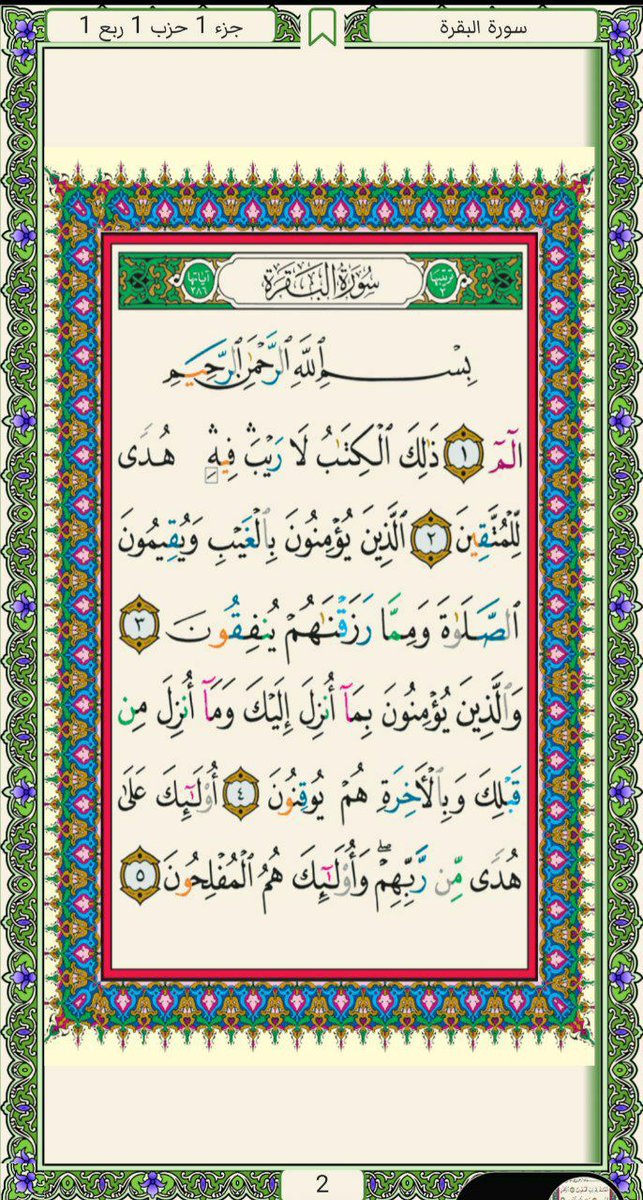 سورة البقرة
جزء 1 حزب 1 ربع 1
ترتيبها ٢ سُورَةُ الْبَقَرَةِ آياتها ٢٨٦
بِسْمِ ٱللَّهِ ٱلرَّحْمَٰنِ ٱلرَّحِيمِ
الٓمٓ ١ ذَٰلِكَ ٱلْكِتَٰبُ لَا رَيْبَۛ فِيهِۛ هُدًى
لِّلْمُتَّقِينَ ٢ ٱلَّذِينَ يُؤْمِنُونَ بِٱلْغَيْبِ وَيُقِيمُونَ
ٱلصَّلَوٰةَ وَمِمَّا رَزَقْنَٰهُمْ يُنفِقُونَ ٣
وَٱلَّذِينَ يُؤْمِنُونَ بِمَآ أُنزِلَ إِلَيْكَ وَمَآ أُنزِلَ مِن
قَبْلِكَ وَبِٱلْأَخِرَةِ هُمْ يُوقِنُونَ ٤ أُوْلَٰٓئِكَ عَلَىٰ
هُدًى مِّن رَّبِّهِمْۖ وَأُوْلَٰٓئِكَ هُمُ ٱلْمُفْلِحُونَ ٥
2